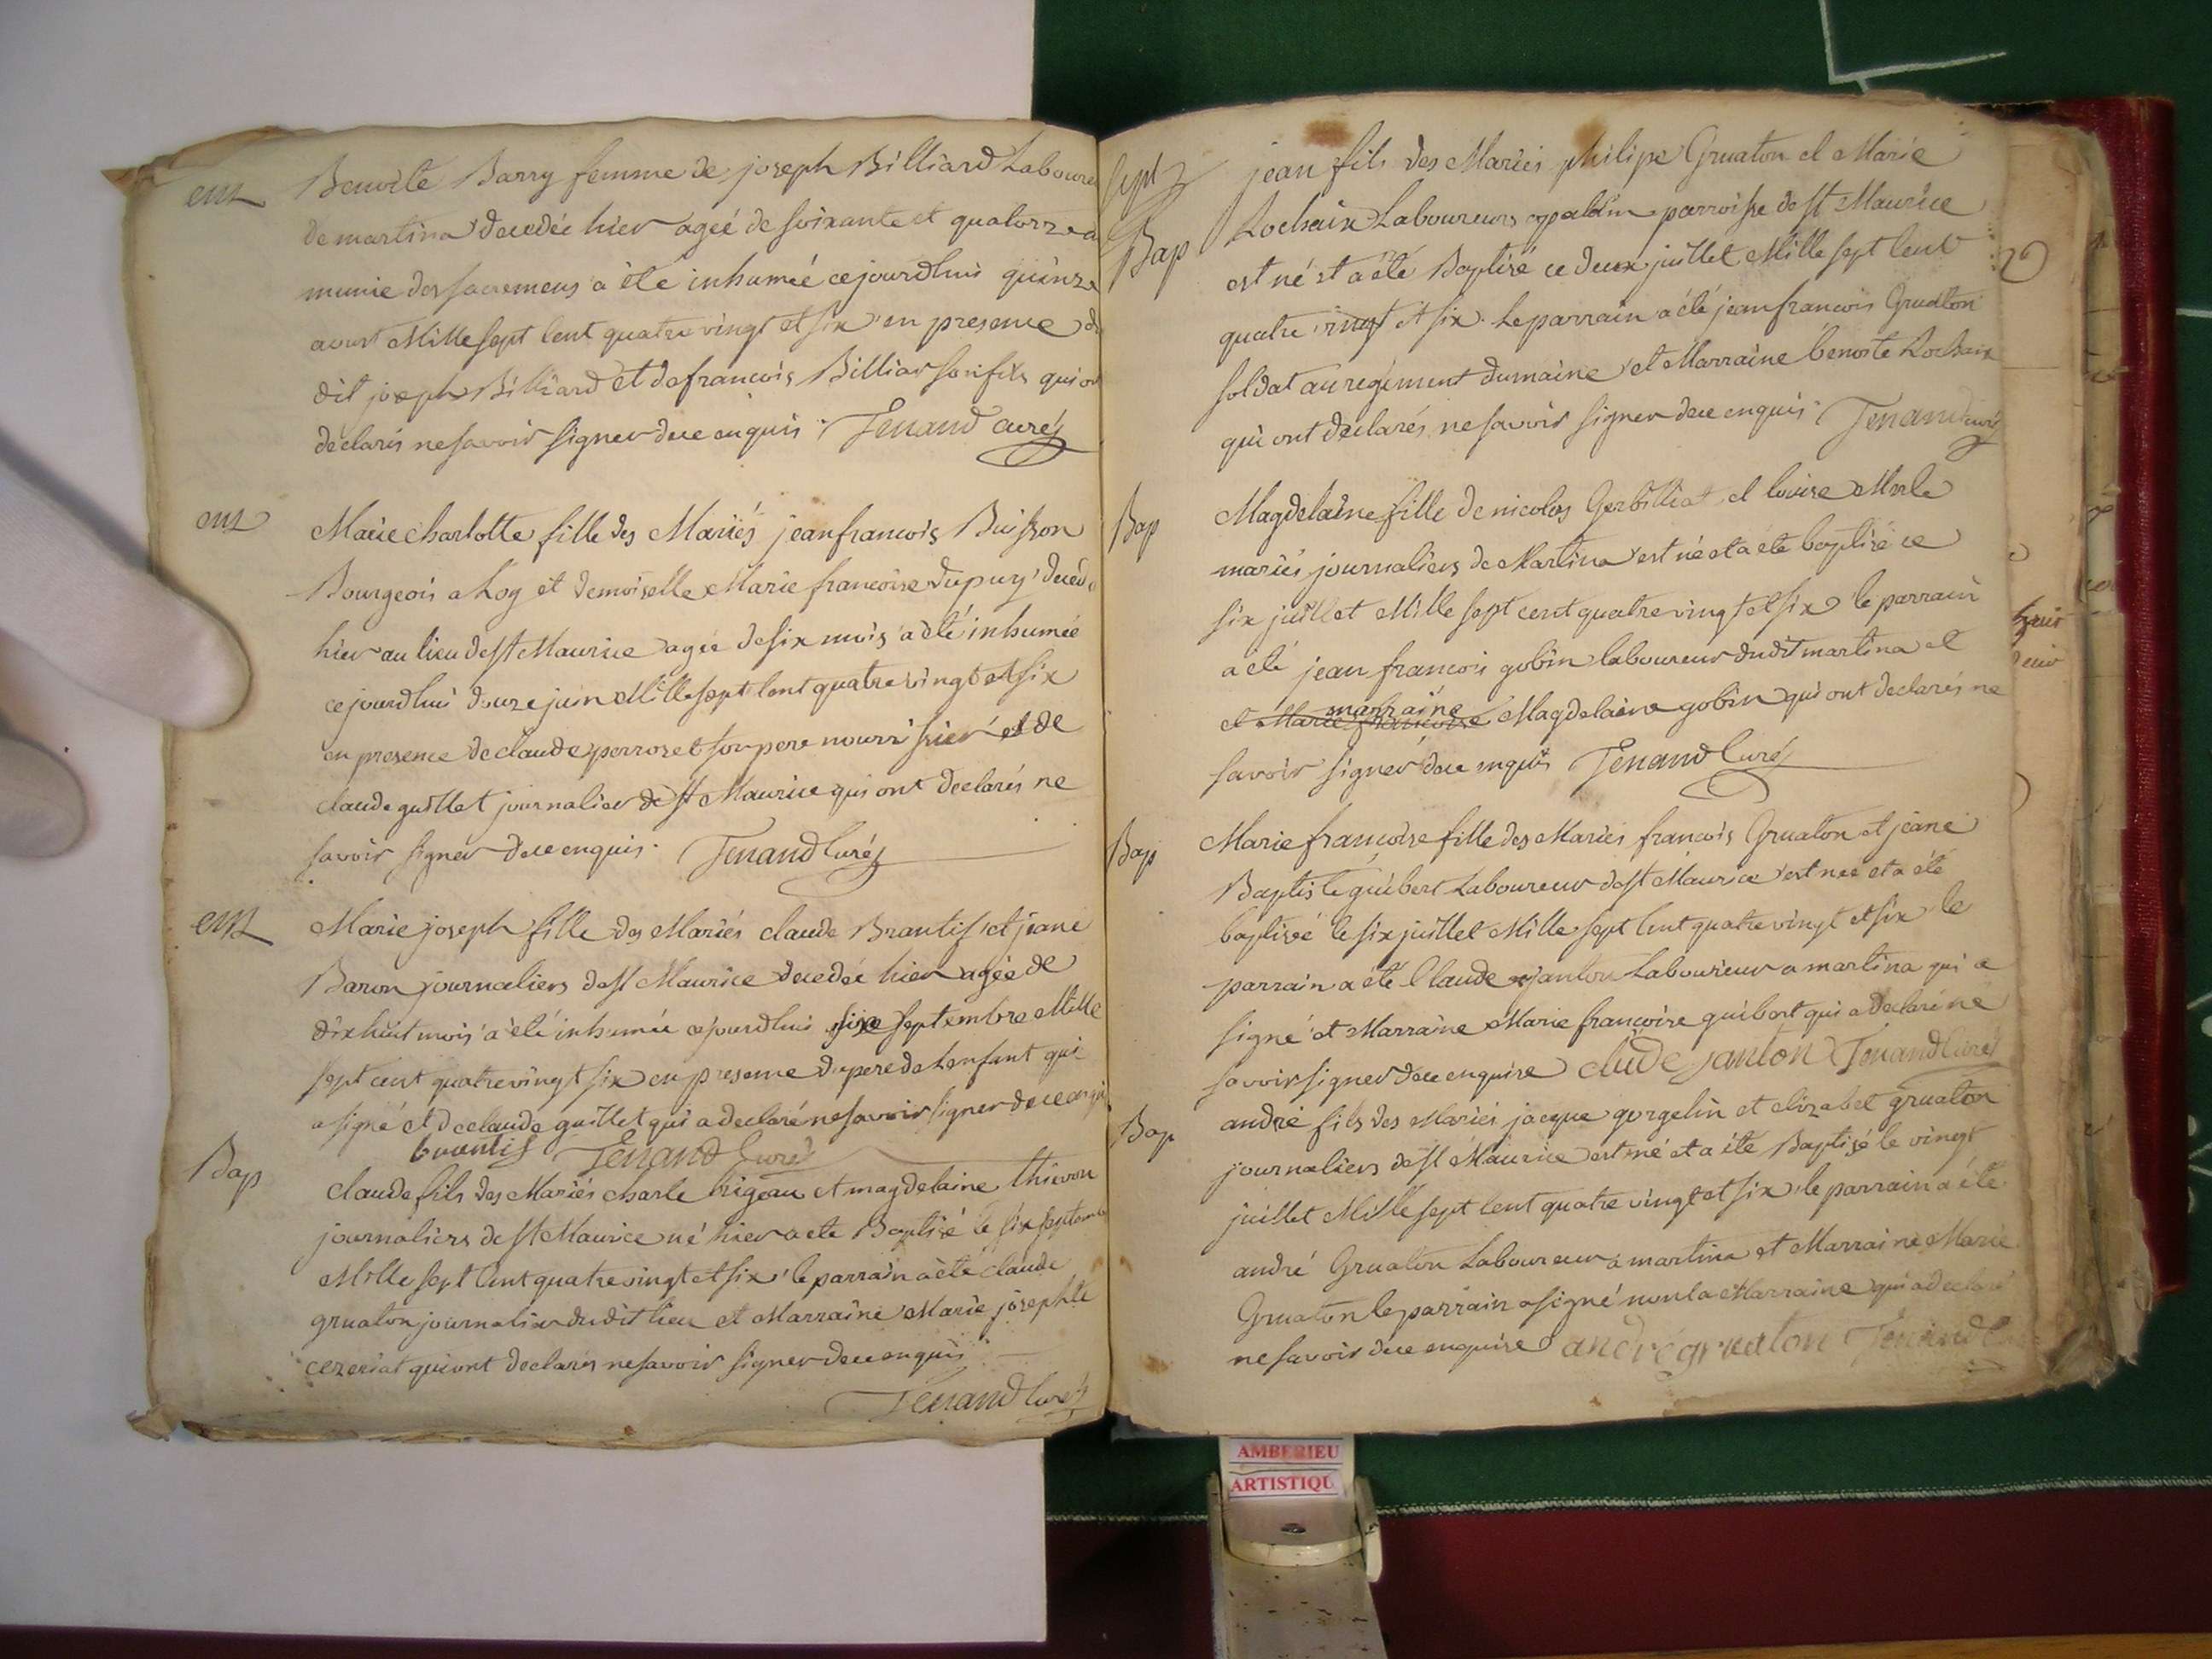 ent
Benoite Barry femme de joseph Billiard Laboure
de martina decedée hier agée de soixante et quatorze a
munie des sacremens a été inhumée cejourdhui quinze
aoust Mille sept Cent quatre vingt et six en presence du
dit joseph Billiard et de francois Billiar son fils qui on
declarés ne savoir signer de ce enquis Tenand curé
ent
Marie charlotte fille des Mariés jean francois Buisson
Bourgeois a Loy et demoiselle Marie francoise dupuy deced
hier au lieu de st Maurice agée de six mois a été inhumée
cejourdhui douze juin Mille sept Cent quatre vingt et six
en presence de claude perroset son pere nourrissier et de
claude guillet journalier de st Maurice qui ont declarés ne
savoir signer de ce enquis Tenand Curé
ent
Marie joseph fille des Mariés claude Brantif et jeane
Baron journaliers de st Maurice decedée hier agée de
dixhuit mois a été inhumée cejourdhui six septembre Mille
sept cent quatrevingt six en presence du pere de Lenfant qui
a signé et de claude guillet qui a declaré ne savoir signer de ce enqui
brantif Tenand Curé
Bap
claude fils des Mariés charle brigeau et magdelaine thievon
journaliers de st Maurice né hier a ete Baptisé le six septemb
Mille sept Cent quatre vingt et six le parrain a été claude
gruaton journalier dudit lieu et Marraine Marie josephte
cezeriat qui ont declarés ne savoir signer de ce enquis
Tenand Curé
Sept
Bap
jean fils des Mariés philipe Gruaton et Marie
Lochaix Laboureurs parroisse de st Maurice
est né et a été Baptisé ce deux juillet Mille sept Cent
quatre vingt et six. Le parrain a été jean francois Gruaton
soldat au regiment dumaine et Marraine benoite Lochaix
qui ont declarés ne savoir signer de ce enquis Tenand curé
Bap
Magdelaine fille de nicolas Gerbilliat et louise Merle
mariés journaliers de Martina est né et a ete baptisé ce
six juillet Mille sept cent quatre vingt et six le parrain
a été jean francois gobin laboureur dudit martina et
et Marie francoise marraine Magdelaine gobin qui ont declarés ne
savoir signer de ce enquis Tenand Curé
Bap
Marie francoise fille des Mariés francois Gruaton et jeane
Baptiste guibert Laboureur de st Maurice est née et a été
baptisée le six juillet Mille sept Cent quatre vingt et six le
parrain a été Claude janton Laboureur a martina qui a
signé et Marraine Marie francoise guibert qui a declaré ne
savoir signer de ce enquise clude janton Tenand Curé
Bap
andré fils des Mariés jacque gorgelin et elizabet gruaton
journaliers de st Maurice est né et a été Baptisé le vingt
juillet Mille sept Cent quatre vingt et six le parrain a été
andré Gruaton Laboureur a martina et Marraine Marie
Gruaton le parrain a signé non la Marraine qui a declaré
ne savoir de ce enquise andre gruaton Tenand C
AMBERIEU
ARTISTIQU